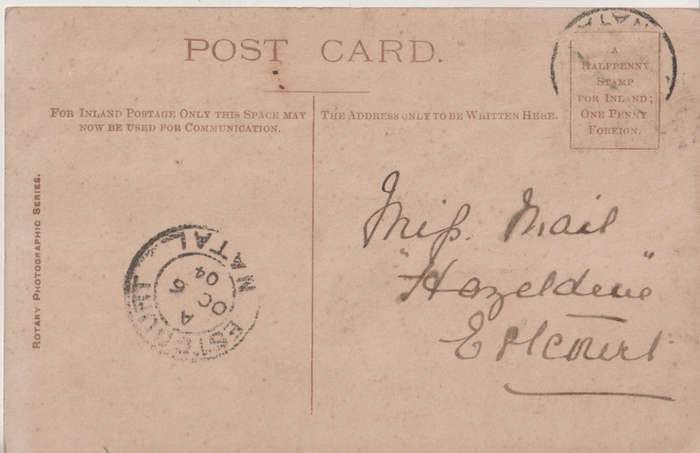 POST CARD.
NATAL
A
HALFPENNY
STAMP
FOR INLAND;
ONE PENNY
FOREIGN.
FOR INLAND POSTAGE ONLY THIS SPACE MAY
NOW BE USED FOR COMMUNICATION.
THE ADDRESS ONLY TO BE WRITTEN HERE.
ROTARY PHOTOGRAPHIC SERIES.
ESTCOURT
NATAL
A
OC 6
04
Miss. Mail
"Hazeldene"
Estcourt